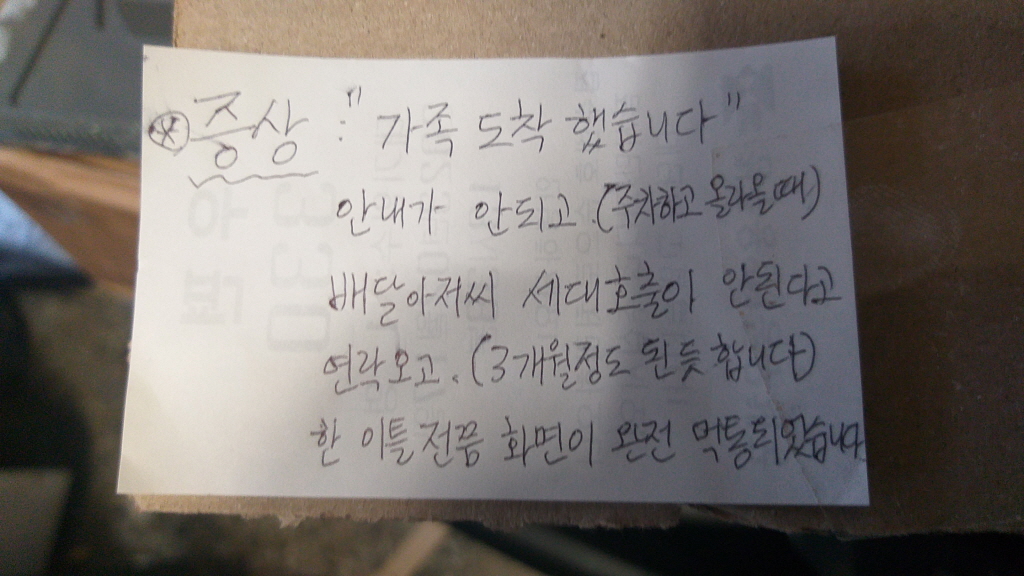 ※ 증상 : "가족 도착 했습니다"
안내가 안되고 (주차하고 올라올때)
배달아저씨 세대호출이 안된다고
연락오고. (3개월정도 된듯 합니다)
한 이틀전쯤 화면이 완전 먹통되었습니다